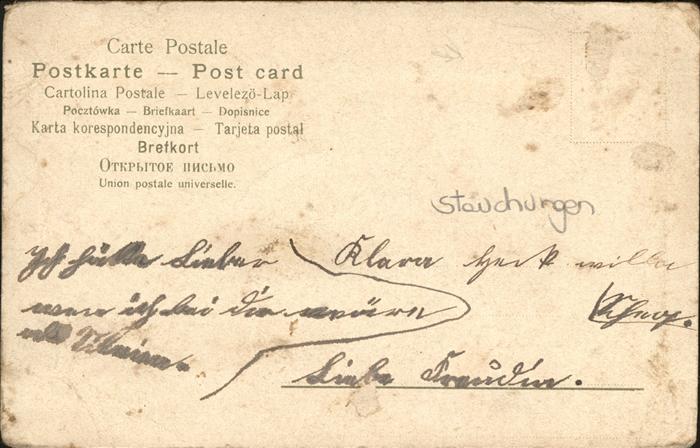 Carte Postale
Postkarte — Post card
Cartolina Postale — Levelező-Lap
Pocztówka — Briefkaart — Dopisnice
Karta korespondencyjna — Tarjeta postal
Brefkort
Открытое письмо
Union postale universelle.
Stauchungen
Ich hätte Lieber
wen ich bei die wäre
Klara
Liebe Freudin.